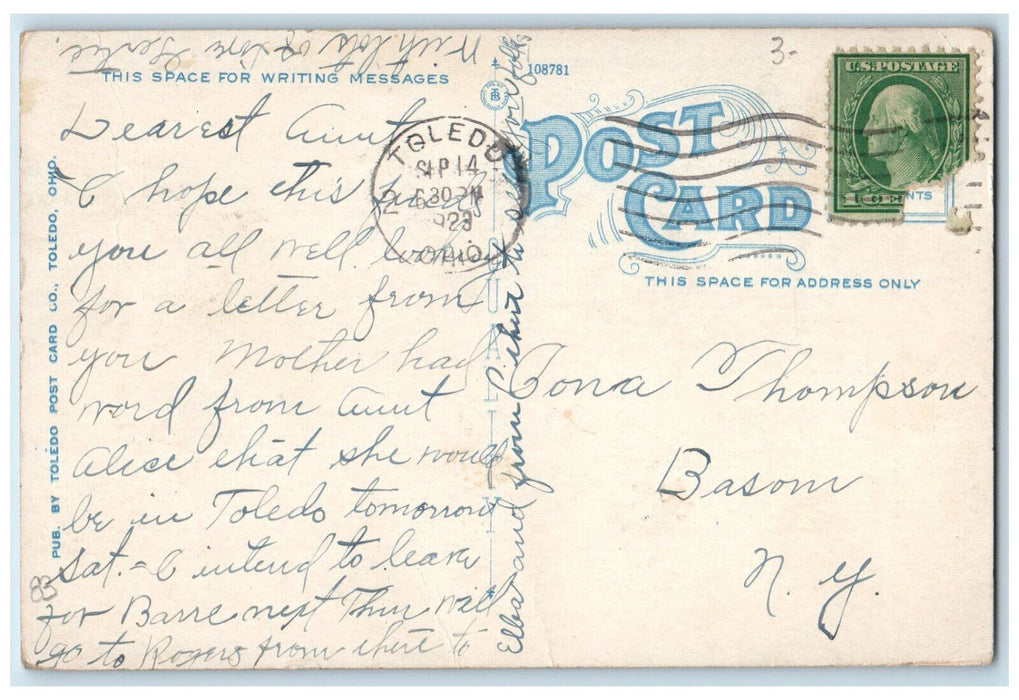 THIS SPACE FOR WRITING MESSAGES
Dearest Aunt
I hope this finds
you all well. looking
for a letter from
you Mother had
word from Aunt
Alice that she would
be in Toledo tomorrow
Sat. - I intend to leave
for Barre next Thur will
go to Rogers from there to
Elba and from there to see your folks
With lots of love Gertie.
PUB. BY TOLEDO POST CARD CO., TOLEDO, OHIO.
108781
TOLEDO
SEP 14
630 PM
1923
OHIO
3-
POST
CARD
U.S. POSTAGE
1 CENT
THIS SPACE FOR ADDRESS ONLY
Iona Thompson
Basom
N. Y.
83